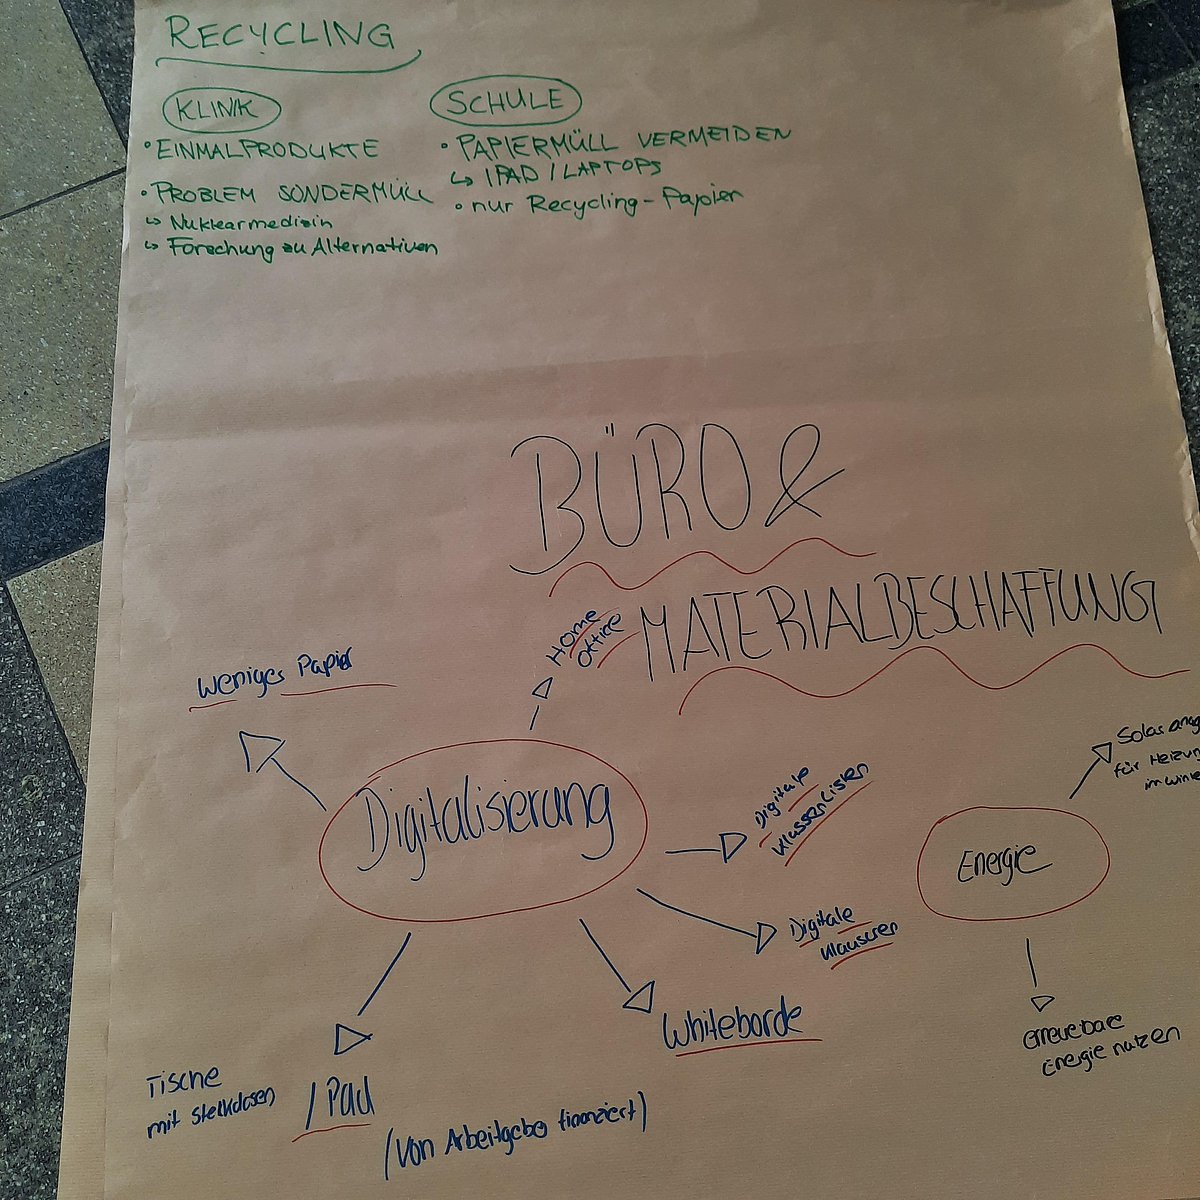 RECYCLING
KLINIK
• EINMALPRODUKTE
• PROBLEM SONDERMÜLL
↳ Nuklearmedizin
↳ Forschung zu Alternativen
SCHULE
• PAPIERMÜLL VERMEIDEN
↳ IPAD / LAPTOPS
• nur Recycling-Papier
BÜRO &
MATERIALBESCHAFFUNG
Home
Office
weniges Papier
Digitalisierung
Digitale
Klassenlisten
Digitale
Klausuren
Whiteborde
IPad
Tische
mit Steckdosen
(von Arbeitgeber finanziert)
Energie
für Heizung
erneuerbare
Energie nutzen